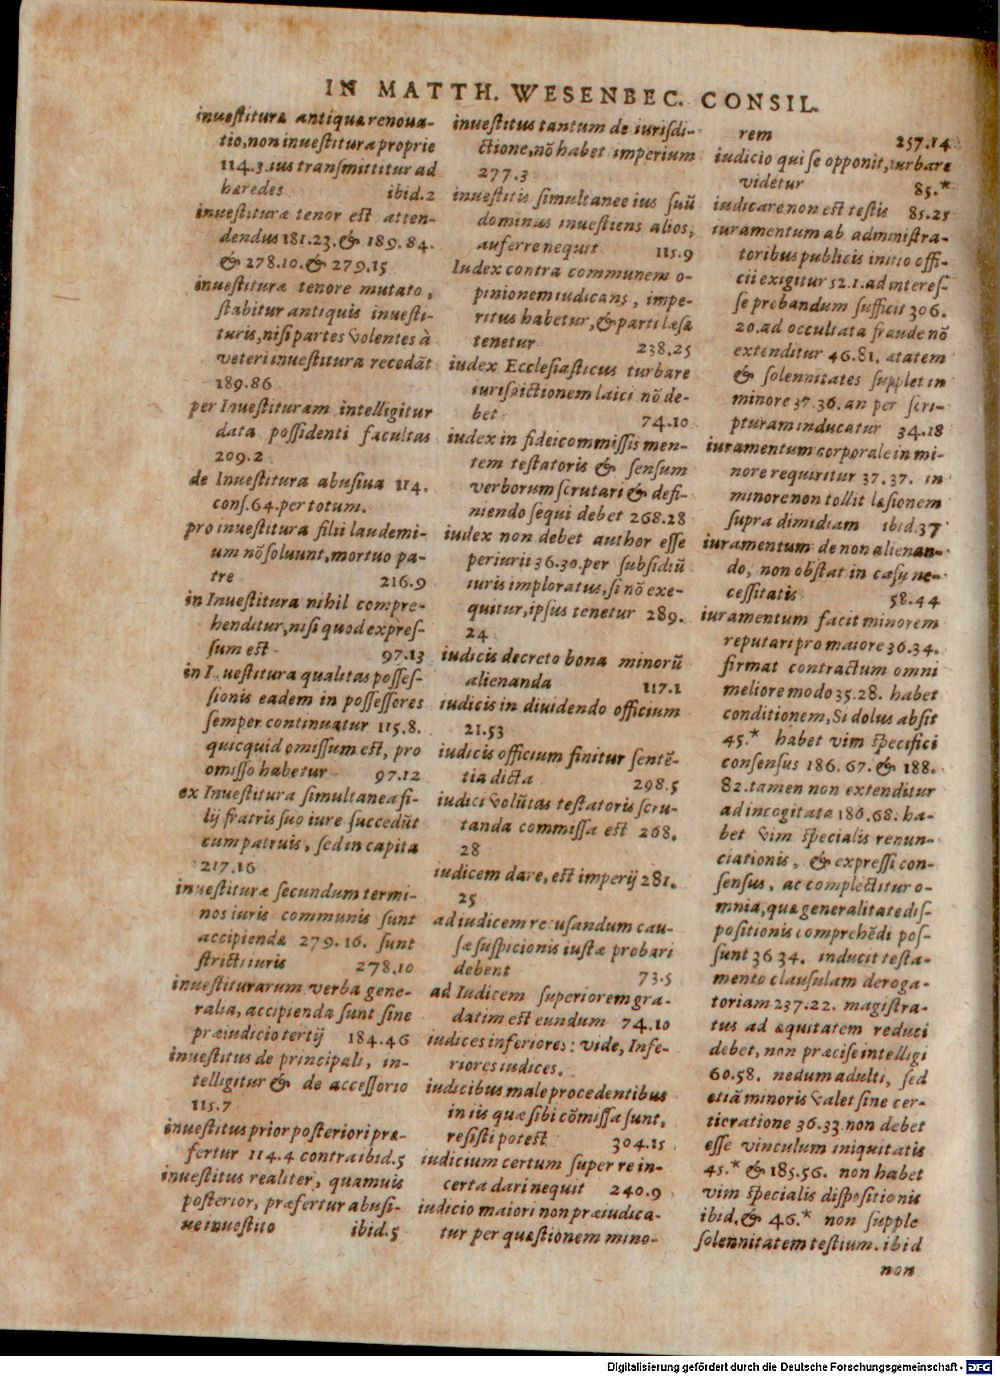 IN MATTH. WESENBEC. CONSIL.
inuestituræ antiquæ renoua-
tio, non inuestituræ proprie
114.3. ius transmittitur ad
hæredes ibid.2
inuestituræ tenor est atten-
dendus 181.23. & 189.84.
& 278.10. & 279.15
inuestituræ tenore mutato,
stabitur antiquis inuesti-
turis, nisi partes volentes à
veteri inuestitura recedāt
189.86
per Inuestituram intelligitur
data possidenti facultas
209.2
de Inuestitura abusiua 114.
cons.64.per totum.
pro inuestitura filii laudemi-
um nō soluunt, mortuo pa-
tre 216.9
in Inuestitura nihil compre-
henditur, nisi quod expres-
sum est 97.13
in Inuestitura qualitas posses-
sionis eadem in possessores
semper continuatur 115.8.
quicquid omissum est, pro
omisso habetur 97.12
ex Inuestitura simultanea fi-
lij fratris suo iure succedūt
cum patruis, sed in capita
217.16
inuestituræ secundum termi-
nos iuris communis sunt
accipiendæ 279.16. sunt
stricti iuris 278.10
inuestiturarum verba gene-
ralia, accipienda sunt sine
præiudicio tertij 184.46
inuestitus de principali, in-
telligitur & de accessorio
115.7
inuestitus prior posteriori præ-
fertur 114.4 contra ibid.5
inuestitus realiter, quamuis
posterior, præfertur abusi-
ue inuestito ibid.5
inuestitus tantum de iurisdi-
ctione, nō habet imperium
277.3
inuestitis simultanee ius suū
dominus inuestiens alios,
auferre nequit 115.9
Iudex contra communem o-
pinionem iudicans, impe-
ritus habetur, & parti læsæ
tenetur 238.25
iudex Ecclesiasticus turbare
iurisdictionem laici nō de-
bet 74.10
iudex in fideicommissis men-
tem testatoris & sensum
verborum scrutari & defi-
niendo sequi debet 268.28
iudex non debet author esse
periurii 36.30. per subsidiū
iuris imploratus, si nō exe-
quitur, ipsus tenetur 289.
24
iudicis decreto bona minorū
alienanda 117.1
iudicis in diuidendo officium
21.53
iudicis officium finitur sentē-
tia dicta 298.5
iudici volūtas testatoris scru-
tanda commissa est 268.
28
iudicem dare, est imperij 281.
25
ad iudicem recusandum cau-
sæ suspicionis iustæ probari
debent 73.5
ad Iudicem superiorem gra-
datim est eundum 74.10
iudices inferiores: vide, Infe-
riores iudices.
iudicibus male procedentibus
in iis quæ sibi cōmissa sunt,
resisti potest 304.15
iudicium certum super re in-
certa dari nequit 240.9
iudicio maiori non præiudica-
tur per quæstionem mino-
rem 257.14
iudicio qui se opponit, turbare
videtur 85.*
iudicare non est testis 85.25
iuramentum ab administra-
toribus publicis initio offi-
cii exigitur 52.1. ad interes-
se probandum sufficit 306.
20. ad occultata fraude nō
extenditur 46.81. ætatem
& solennitates supplet in
minore 37.36. an per scri-
pturam inducatur 34.18
iuramentum corporale in mi-
nore requiritur 37.37. in
minore non tollit læsionem
supra dimidiam ibid.37
iuramentum de non alienan-
do, non obstat in casu ne-
cessitatis 58.44
iuramentum facit minorem
reputari pro maiore 36.34.
firmat contractum omni
meliore modo 35.28. habet
conditionem, Si dolus absit
45.* habet vim specifici
consensus 186.67. & 188.
82. tamen non extenditur
ad incogitata 186.68. ha-
bet vim specialis renun-
ciationis, & expressi con-
sensus, ac complectitur o-
mnia, quæ generalitate dis-
positionis comprehēdi pos-
sunt 36 34. inducit testa-
mento clausulam deroga-
toriam 237.22. magistra-
tus ad æquitatem reduci
debet, non præcise intelligi
60.58. nedum adulti, sed
etiā minoris valet sine cer-
tioratione 36.33 non debet
esse vinculum iniquitatis
45.* & 185.56. non habet
vim specialis dispositionis
ibid. & 46.* non supple
solennitatem testium. ibid
non
Digitalisierung gefördert durch die Deutsche Forschungsgemeinschaft - DFG